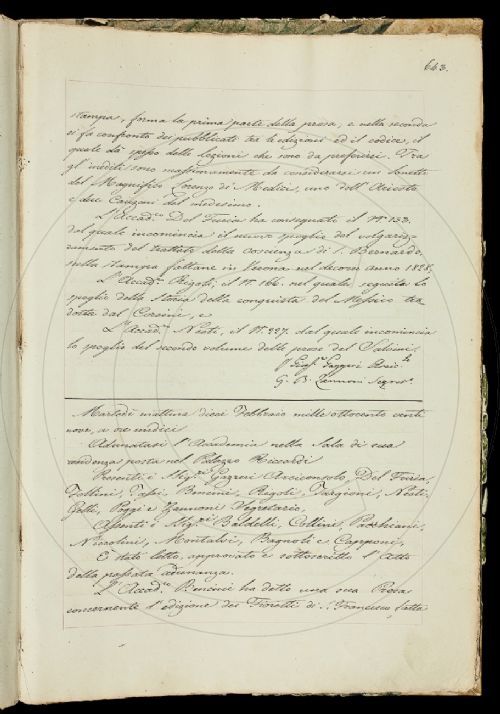 643.
stampa, forma la prima parte della prosa, e nella seconda
si fa confronto dei pubblicati tra le edizioni ed il codice, il
quale dà spesso delle lezioni che sono da preferirsi. Tra
gl'inediti sono massimamente da considerarsi un Sonetto
del Magnifico Lorenzo di Medici, uno dell'Ariosto
e due Canzoni del medesimo.
L'Accad.co Del Furia ha consegnato il N.o 153.
del quale incomincia il nuovo spoglio del volgariz-
zamento del trattato della coscienza di S. Bernardo,
nella stampa fattane in Verona nel decorso anno 1828.
L'Accad.co Rigoli, il N.o 166. nel quale seguita lo
spoglio della Storia della conquista del Messico tra
dotta dal Corsini, e
L'Accad.co Nesti, il N.o 227. dal quale incomincia
lo spoglio del secondo volume delle prose del Salvini.
Gazzeri
G. B. Zannoni Segret.o
Martedì mattina dieci Febbraio mille ottocento venti
nove, a ore undici
Adunatasi l'Accademia nella Sala di sua
residenza posta nel Palazzo Riccardi
Presenti i Sig.ri Gazzeri Arciconsolo, Del Furia,
Follini, Bencini, Rigoli, Targioni, Nesti,
Gelli, Poggi e Zannoni Segretario.
Assenti i Sig.ri Baldelli, Collini, Pacchiani,
Niccolini, Montalvi, Bagnoli e Capponi,
È stato letto, approvato e sottoscritto l'Atto
della passata adunanza.
L'Accad.co Bencini ha detto una sua Prosa
concernente l'edizione dei Fioretti di S. Francesco, fatta